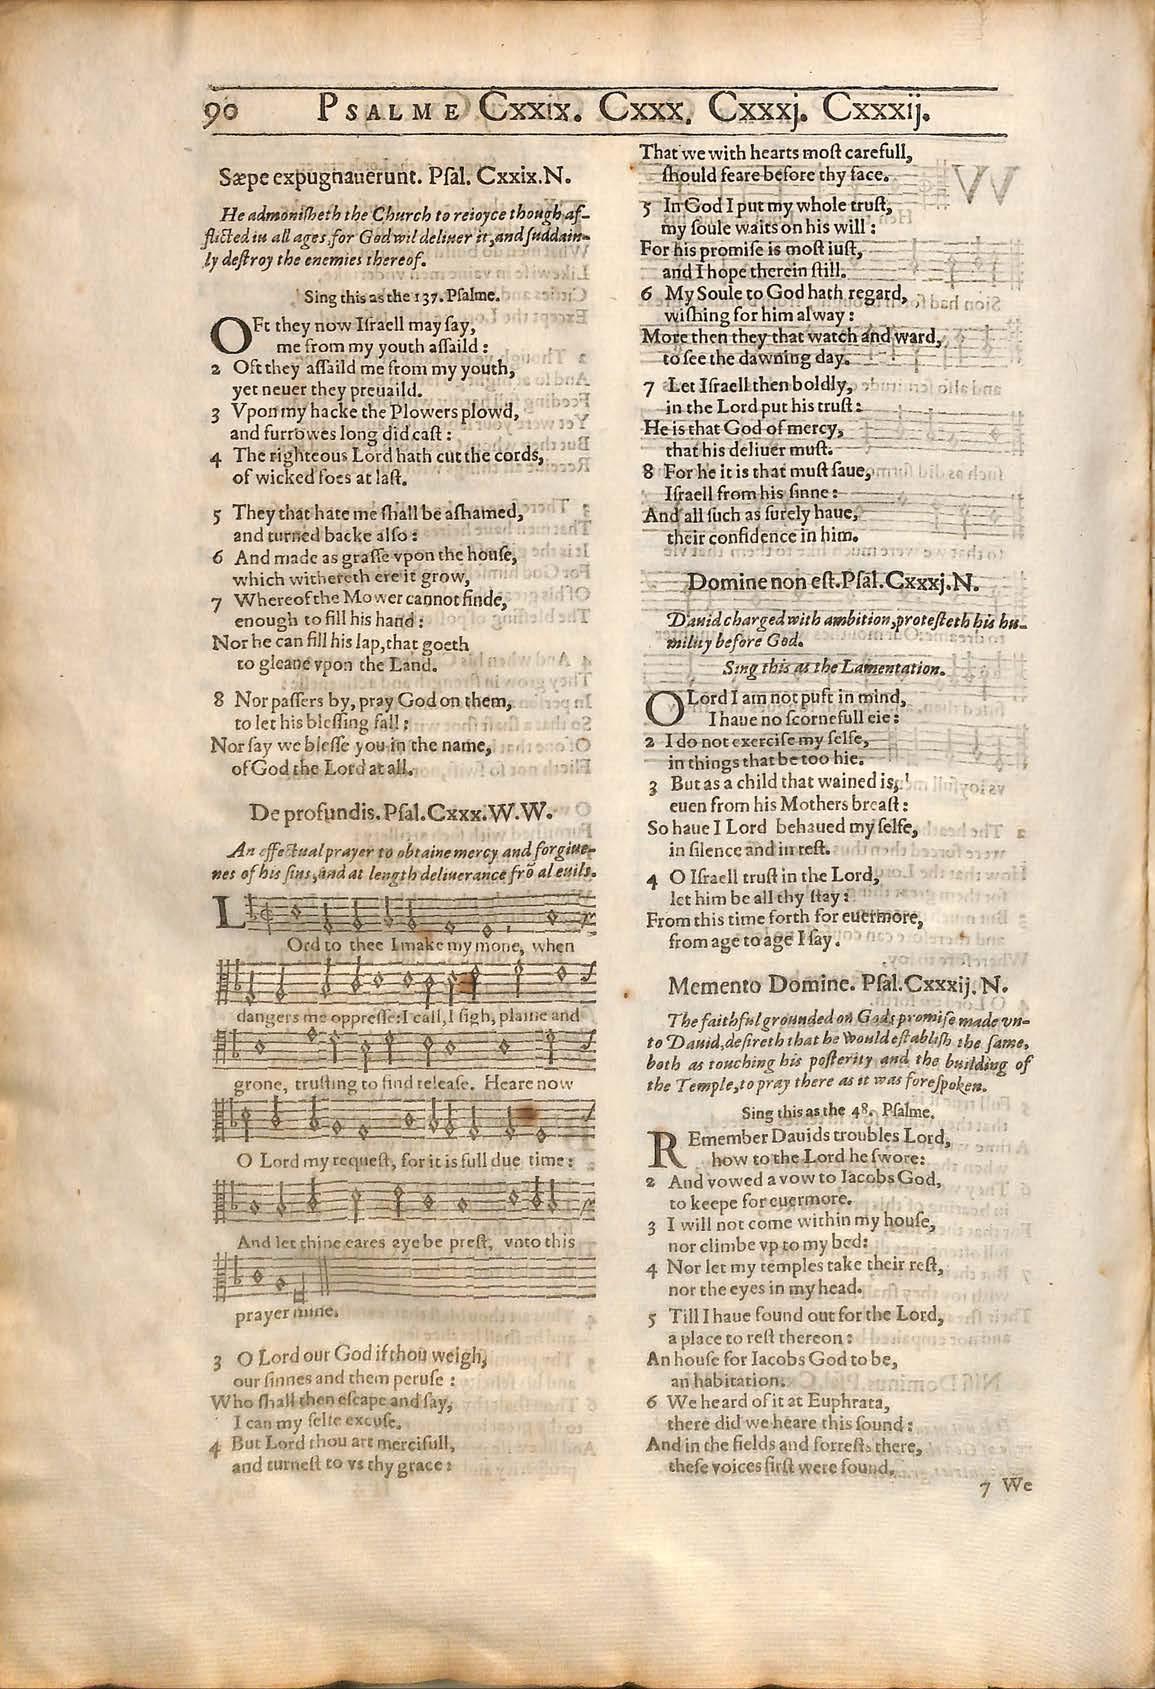 90 PSALME Cxxix. Cxxx. Cxxxj. Cxxxij.
Sæpe expugnauerunt. Psal. Cxxix. N.
He admonisheth the Church to reioyce though af-
flicted in all ages, for God wil deliuer it, and suddain-
ly destroy the enemies thereof.
Sing this as the 137. Psalme.
OFt they now Israell may say,
me from my youth assaild :
2 Oft they assaild me from my youth,
yet neuer they preuaild.
3 Vpon my backe the Plowers plowd,
and furrowes long did cast :
4 The righteous Lord hath cut the cords,
of wicked foes at last.
5 They that hate me shall be ashamed,
and turned backe also :
6 And made as grasse vpon the house,
which withereth ere it grow,
7 Whereof the Mower cannot finde,
enough to fill his hand :
Nor he can fill his lap, that goeth
to gleane vpon the Land.
8 Nor passers by, pray God on them,
to let his blessing fall :
Nor say we blesse you in the name,
of God the Lord at all.
De profundis. Psal. Cxxx. W. W.
An effectual prayer to obtaine mercy and forgiue-
nes of his sins, and at length deliuerance frõ al euils.
LOrd to thee I make my mone, when
dangers me oppresse: I call, I sigh, plaine and
grone, trusting to find release. Heare now
O Lord my request, for it is full due time:
And let thine eares aye be prest, vnto this
prayer mine.
3 O Lord our God if thou weigh,
our sinnes and them peruse :
Who shall then escape and say,
I can my selfe excuse.
4 But Lord thou art mercifull,
and turnest to vs thy grace:
That we with hearts most carefull,
should feare before thy face.
5 In God I put my whole trust,
my soule waits on his will :
For his promise is most iust,
and I hope therein still.
6 My Soule to God hath regard,
wishing for him alway :
More then they that watch and ward,
to see the dawning day.
7 Let Israell then boldly,
in the Lord put his trust:
He is that God of mercy,
that his deliuer must.
8 For he it is that must saue,
Israell from his sinne :
And all such as surely haue,
their confidence in him.
Domine non est. Psal. Cxxxj. N.
Dauid charged with ambition, protesteth his hu-
mility before God.
Sing this as the Lamentation.
O Lord I am not puft in mind,
I haue no scornefull eie :
2 I do not exercise my selfe,
in things that be too hie.
3 But as a child that wained is,
euen from his Mothers breast :
So haue I Lord behaued my selfe,
in silence and in rest.
4 O Israell trust in the Lord,
let him be all thy stay :
From this time forth for euermore,
from age to age I say.
Memento Domine. Psal. Cxxxij. N.
The faithful grounded on Gods promise made vn-
to Dauid, desireth that he would establish the same,
both as touching his posterity and the building of
the Temple, to pray there as it was forespoken.
Sing this as the 48. Psalme.
REmember Dauids troubles Lord,
how to the Lord he swore:
2 And vowed a vow to Iacobs God,
to keepe for euermore.
3 I will not come within my house,
nor climbe vp to my bed:
4 Nor let my temples take their rest,
nor the eyes in my head.
5 Till I haue found out for the Lord,
a place to rest thereon :
An house for Iacobs God to be,
an habitation.
6 We heard of it at Euphrata,
there did we heare this sound :
And in the fields and forrests there,
these voices first were found.
7 We